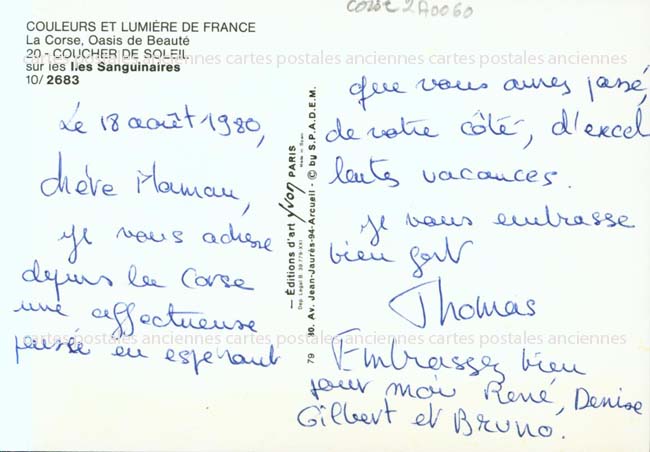 corse 2A0060
COULEURS ET LUMIÈRE DE FRANCE
La Corse, Oasis de Beauté
20 - COUCHER DE SOLEIL
sur les Iles Sanguinaires
10/2683
cartes postales anciennes cartes postales anciennes cartes postales anciennes
Le 18 août 1980,
chère Maman,
je vous adresse
depuis la Corse
une affectueuse
pensée en espérant
— Editions d'art yvon PARIS
Made in Spain
Dep. Legal B. 30.779-XXI
79 30, Av. Jean-Jaurès-94-Arcueil - © by S.P.A.D.E.M.
que vous aurez passé,
de votre côté, d'excel
lentes vacances.
je vous embrasse
bien fort
Thomas
Embrassez bien
pour moi René, Denise
Gilbert et Bruno.
cartes postales anciennes cartes postales anciennes cartes postales anciennes